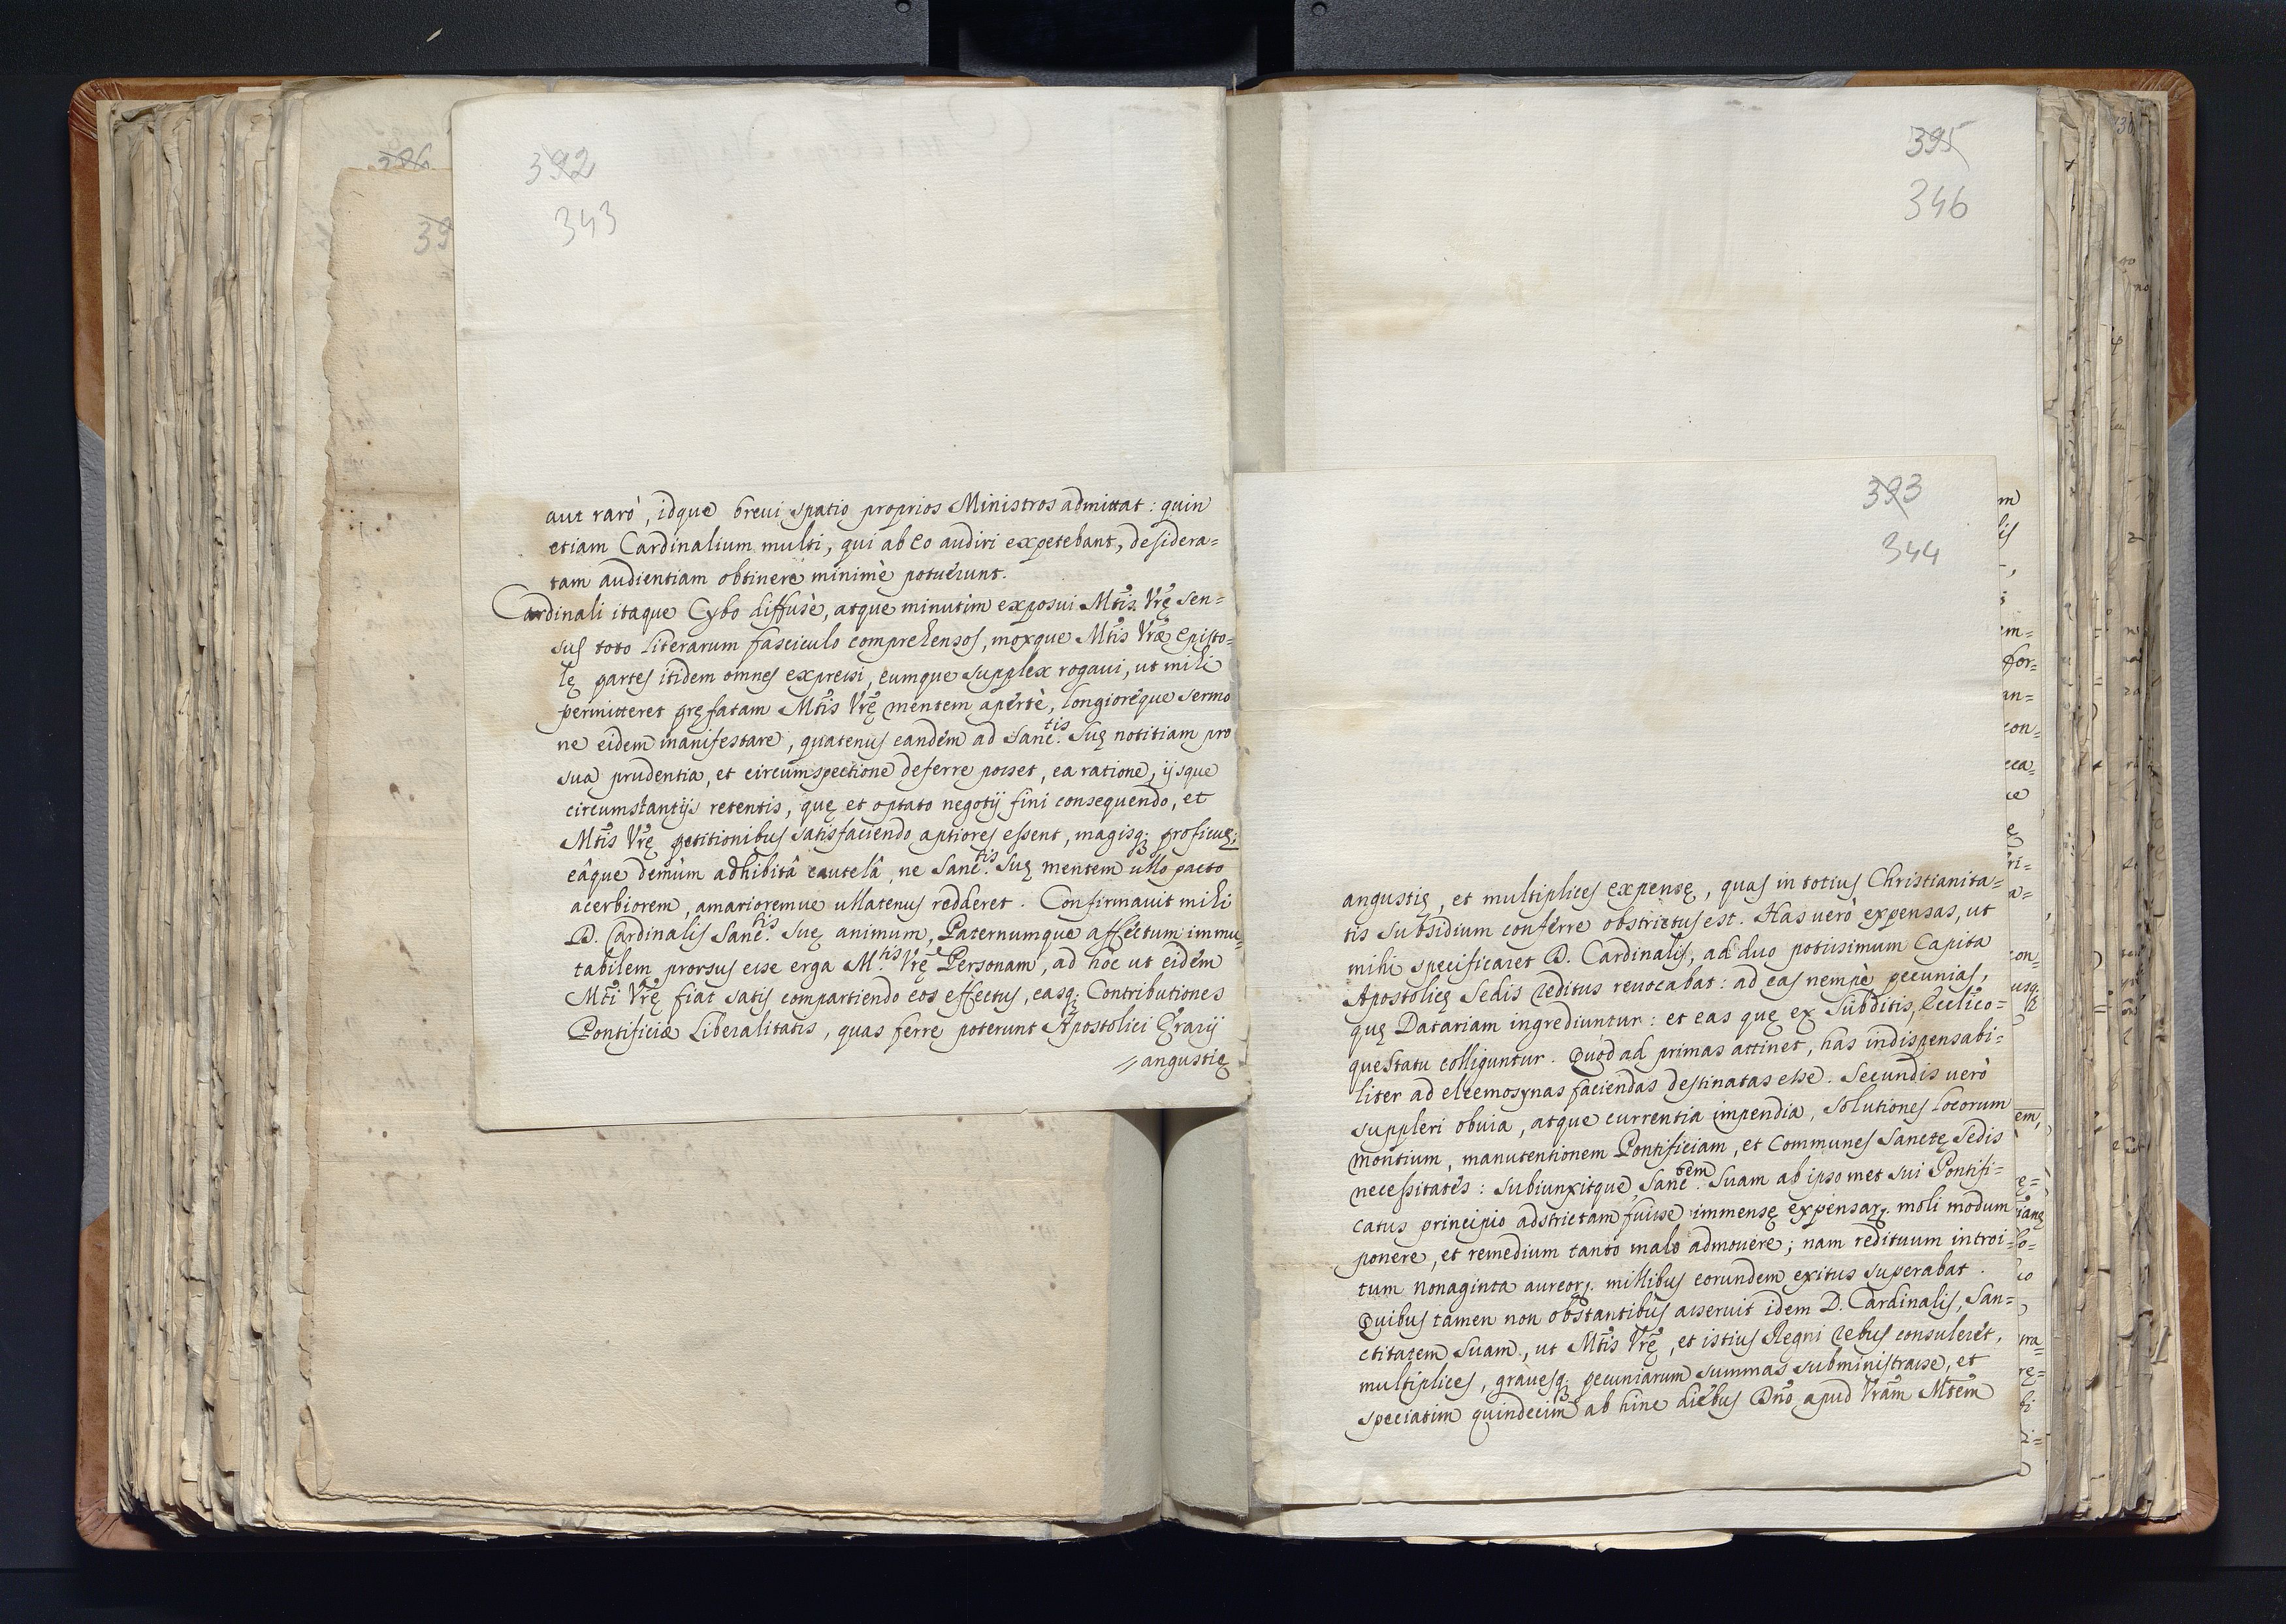 392
343
aut rarò, idque breui spatio proprios Ministros admittat: quin
etiam Cardinalium multi, qui ab eo audiri expetebant, desidera=
tam audientiam obtinere minimè potuerunt.
Cardinali itaque Cybo diffusè, atque minutim exposui Mtis Vrę sen=
sus toto literarum fasciculo comprehensos, moxque Mtis Vræ episto=
lę partes itidem omnes expressi, eumque supplex rogaui, ut mihi
permitteret pręfatam Mtis Vrę mentem apertè, longioreque sermo
ne eidem manifestare, quatenus eandem ad Sanc.tis Suę notitiam pro
sua prudentia, et circumspectione deferre posset, ea ratione, ijsque
circumstantijs retentis, quę et optato negotij fini consequendo, et
Mtis Vrę petitionibus satisfaciendo aptiores essent, magisq; proficuę;
eâque demùm adhibitâ cautelâ, ne Sanc.tis Suę mentem ullo pacto
acerbiorem, amarioremue ullatenus redderet. Confirmauit mihi
D. Cardinalis Sanc.tis Suę animum, Paternumque affectum immu=
tabilem prorsus esse erga M.tis Vrę Personam, ad hoc ut eidem
Mti Vrę fiat satis compartiendo eos effectus, easq; Contributiones
Pontificiæ Liberalitatis, quas ferre poterunt Apostolici Ærarij
angustię
395
346
393
344
angustię, et multiplices expensę, quas in totius Christianita=
tis subsidium conferre obstrictus est. Has uerò expensas, ut
mihi specificaret D. Cardinalis, ad duo potissimum Capita
Apostolicę Sedis reditus reuocabat: ad eas nempè pecunias,
quę Datariam ingrediuntur: et eas quę ex Subditis, Ecclico=
que Statu colliguntur. Quòd ad primas attinet, has indispensabi=
liter ad eleemosynas faciendas destinatas esse. Secundis uerò
suppleri obuia, atque currentia impendia, solutiones locorum
montium, manutentionem Pontificiam, et communes Sanctę Sedis
necessitates: subiunxitque Sanc.tem Suam ab ipsomet sui Pontifi=
catus principio adstrictam fuisse immensę expensar. moli modum
ponere, et remedium tanto malo admouere; nam redituum introi=
tum nonaginta aureor. millibus eorundem exitus superabat.
Quibus tamen non obstantibus asseruit idem D. Cardinalis, San=
ctitatem Suam, ut Mtis Vrę, et istius Regni rebus consuleret,
multiplices, grauesq; pecuniarum summas subministrasse, et
speciatim quindecim ab hinc diebus Dno apud Vram Mtem